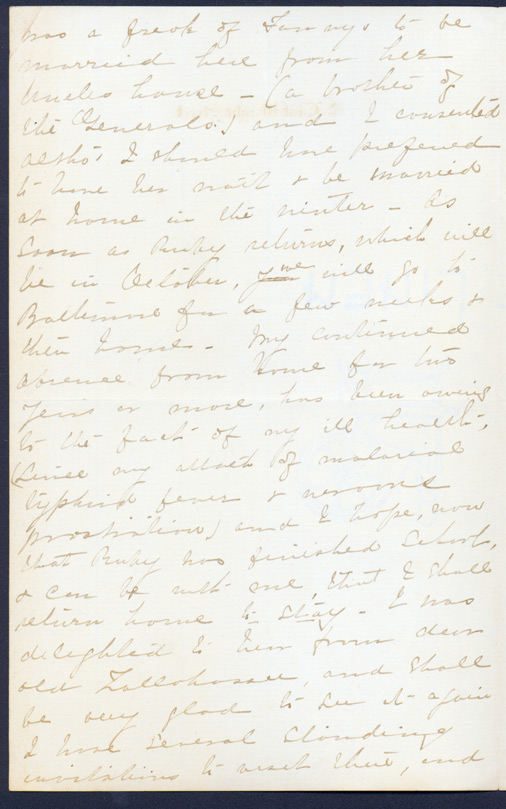 was a freak of Fannys to be
married here from her
Uncles house – (a brother of
the Generals.) and I consented
altho' I should have preferred
to have her wait & be married
at home in the winter – As
soon as Ruby returns, which will
be in October, we will go to
Baltimore for a few weeks &
then home – My continued
absence from home for two
years or more, has been owing
to the fact of my ill health,
(since my attack of malarial
typhoid fever & nervous
prostration) and I hope, now
that Ruby has finished School,
& can be with me, that I shall
return home to stay – I was
delighted to hear from dear
old Tallahassee, and shall
be very glad to see it again
I have several standing
invitations to visit there, and